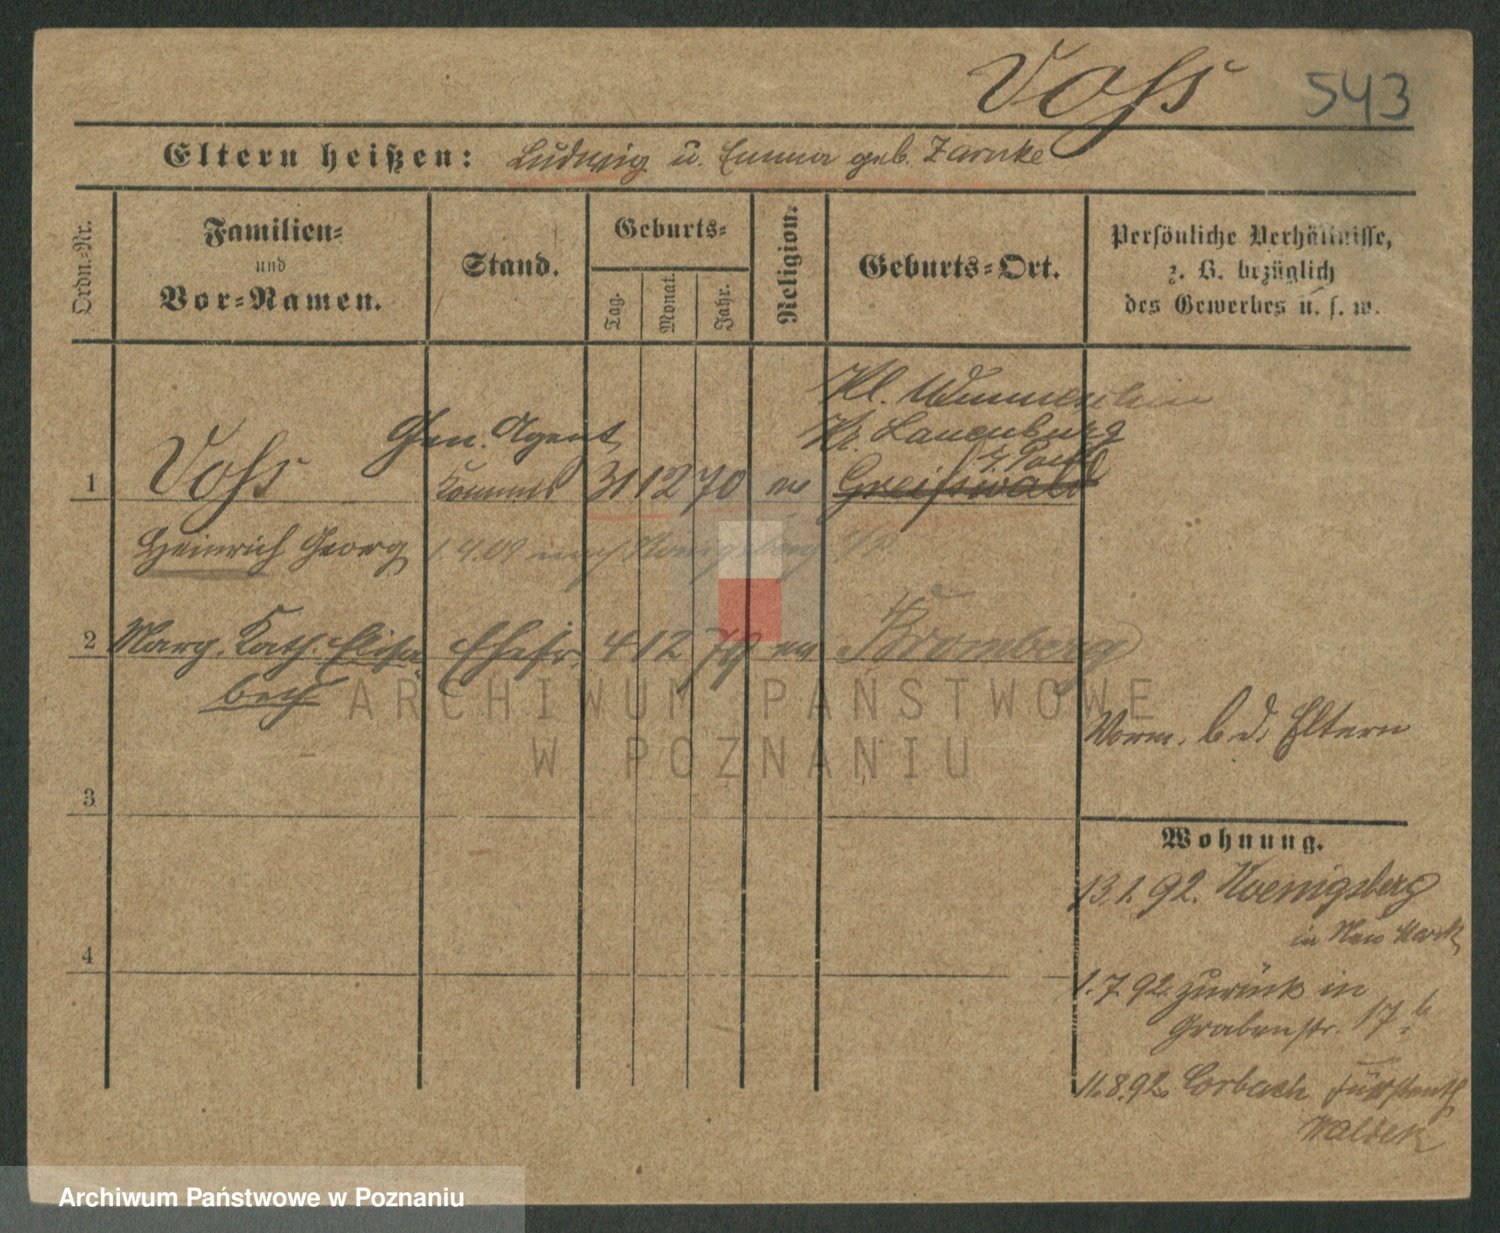 Voss 543
Eltern heißen: Ludwig u. Emma geb. Zarnke
Ordn.-Nr.
Familien-
und
Vor-Namen.
Stand.
Geburts-
Tag.
Monat.
Jahr.
Religion.
Geburts-Ort.
Persönliche Verhältnisse,
z. B. bezüglich
des Gewerbes u. s. w.
Kl.
Kr. Lauenburg
Gen. Agent
1 Voss 31 12 70 ev Greifswald
Heinrich Georg 1.4.09 nach Koenigsberg
2 Marg. Kath. Elisa- Ehefr. 4 12 ev Bromberg
beth
ARCHIWUM PAŃSTWOWE
W POZNANIU
Vorm. b. d. Eltern
3
Wohnung.
13.1.92. Koenigsberg
in Neu Mark
4
1.7.92. zurück in
Grabenstr. 17
11.8.92. Corbach Fürstenth
Waldek
Archiwum Państwowe w Poznaniu